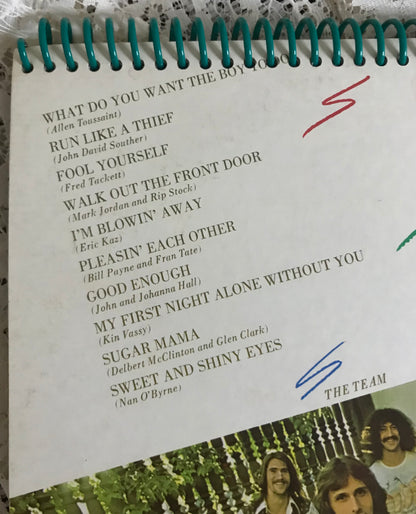 WHAT DO YOU WANT THE BOY TO DO
(Allen Toussaint)
RUN LIKE A THIEF
(John David Souther)
FOOL YOURSELF
(Fred Tackett)
WALK OUT THE FRONT DOOR
(Mark Jordan and Rip Stock)
I'M BLOWIN' AWAY
(Eric Kaz)
PLEASIN' EACH OTHER
(Bill Payne and Fran Tate)
GOOD ENOUGH
(John and Johanna Hall)
MY FIRST NIGHT ALONE WITHOUT YOU
(Kin Vassy)
SUGAR MAMA
(Delbert McClinton and Glen Clark)
SWEET AND SHINY EYES
(Nan O'Byrne)
THE TEAM